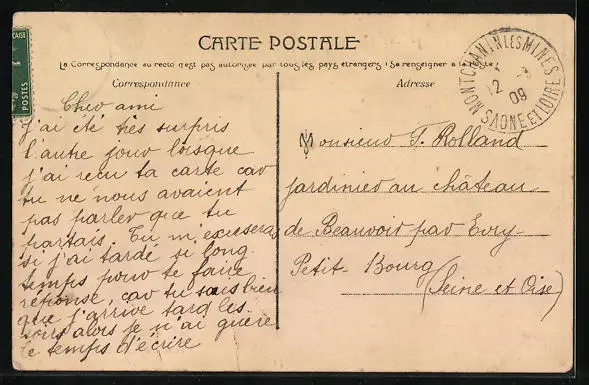 CARTE POSTALE
La Correspondance au recto n'est pas autorisée par tous les pays étrangers (Se renseigner à la Poste)
Correspondance
Adresse
POSTES
MONTCHANIN LES MINES
12
09
SAONE ET LOIRE
Cher ami
J'ai été très surpris
l'autre jour lorsque
j'ai reçu ta carte car
tu ne nous avaient
pas parler que tu
partais. Tu m'excusera
si j'ai tardé si long
temps pour te faire
réponse, car tu sais bien
que j'arrive tard les
soirs alors je n'ai guère
le temps d'écrire
Monsieur F. Rolland
jardinier au château
de Beauvoir par Evry
Petit-Bourg
(Seine et Oise)